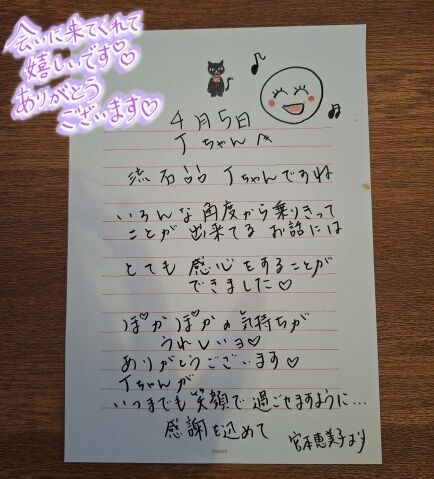 会いに来てくれて
嬉しいです♡
ありがとう
ございます♡
4月5日
Tちゃんへ
流石⁝⁝ Tちゃんですね
いろんな角度から乗りきって
ことが 出来てる お話には
とても 感心をすることが
できました♡
ぽかぽかの気持ちが
うれしいョ♡
ありがとうございます♡
Tちゃんが
いつまでも笑顔で過ごせますように…
感謝を込めて
宮本恵美子より